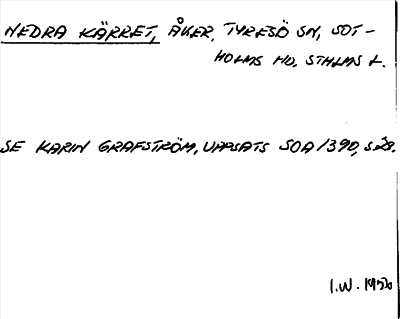 NEDRA KÄRRET, ÅKER, TYRESÖ SN, SOT-
HOLMS HD, STHLMS L.
SE KARIN GRAFSTRÖM, UPPSATS SOA 1390, s.28.
I.W. 1950